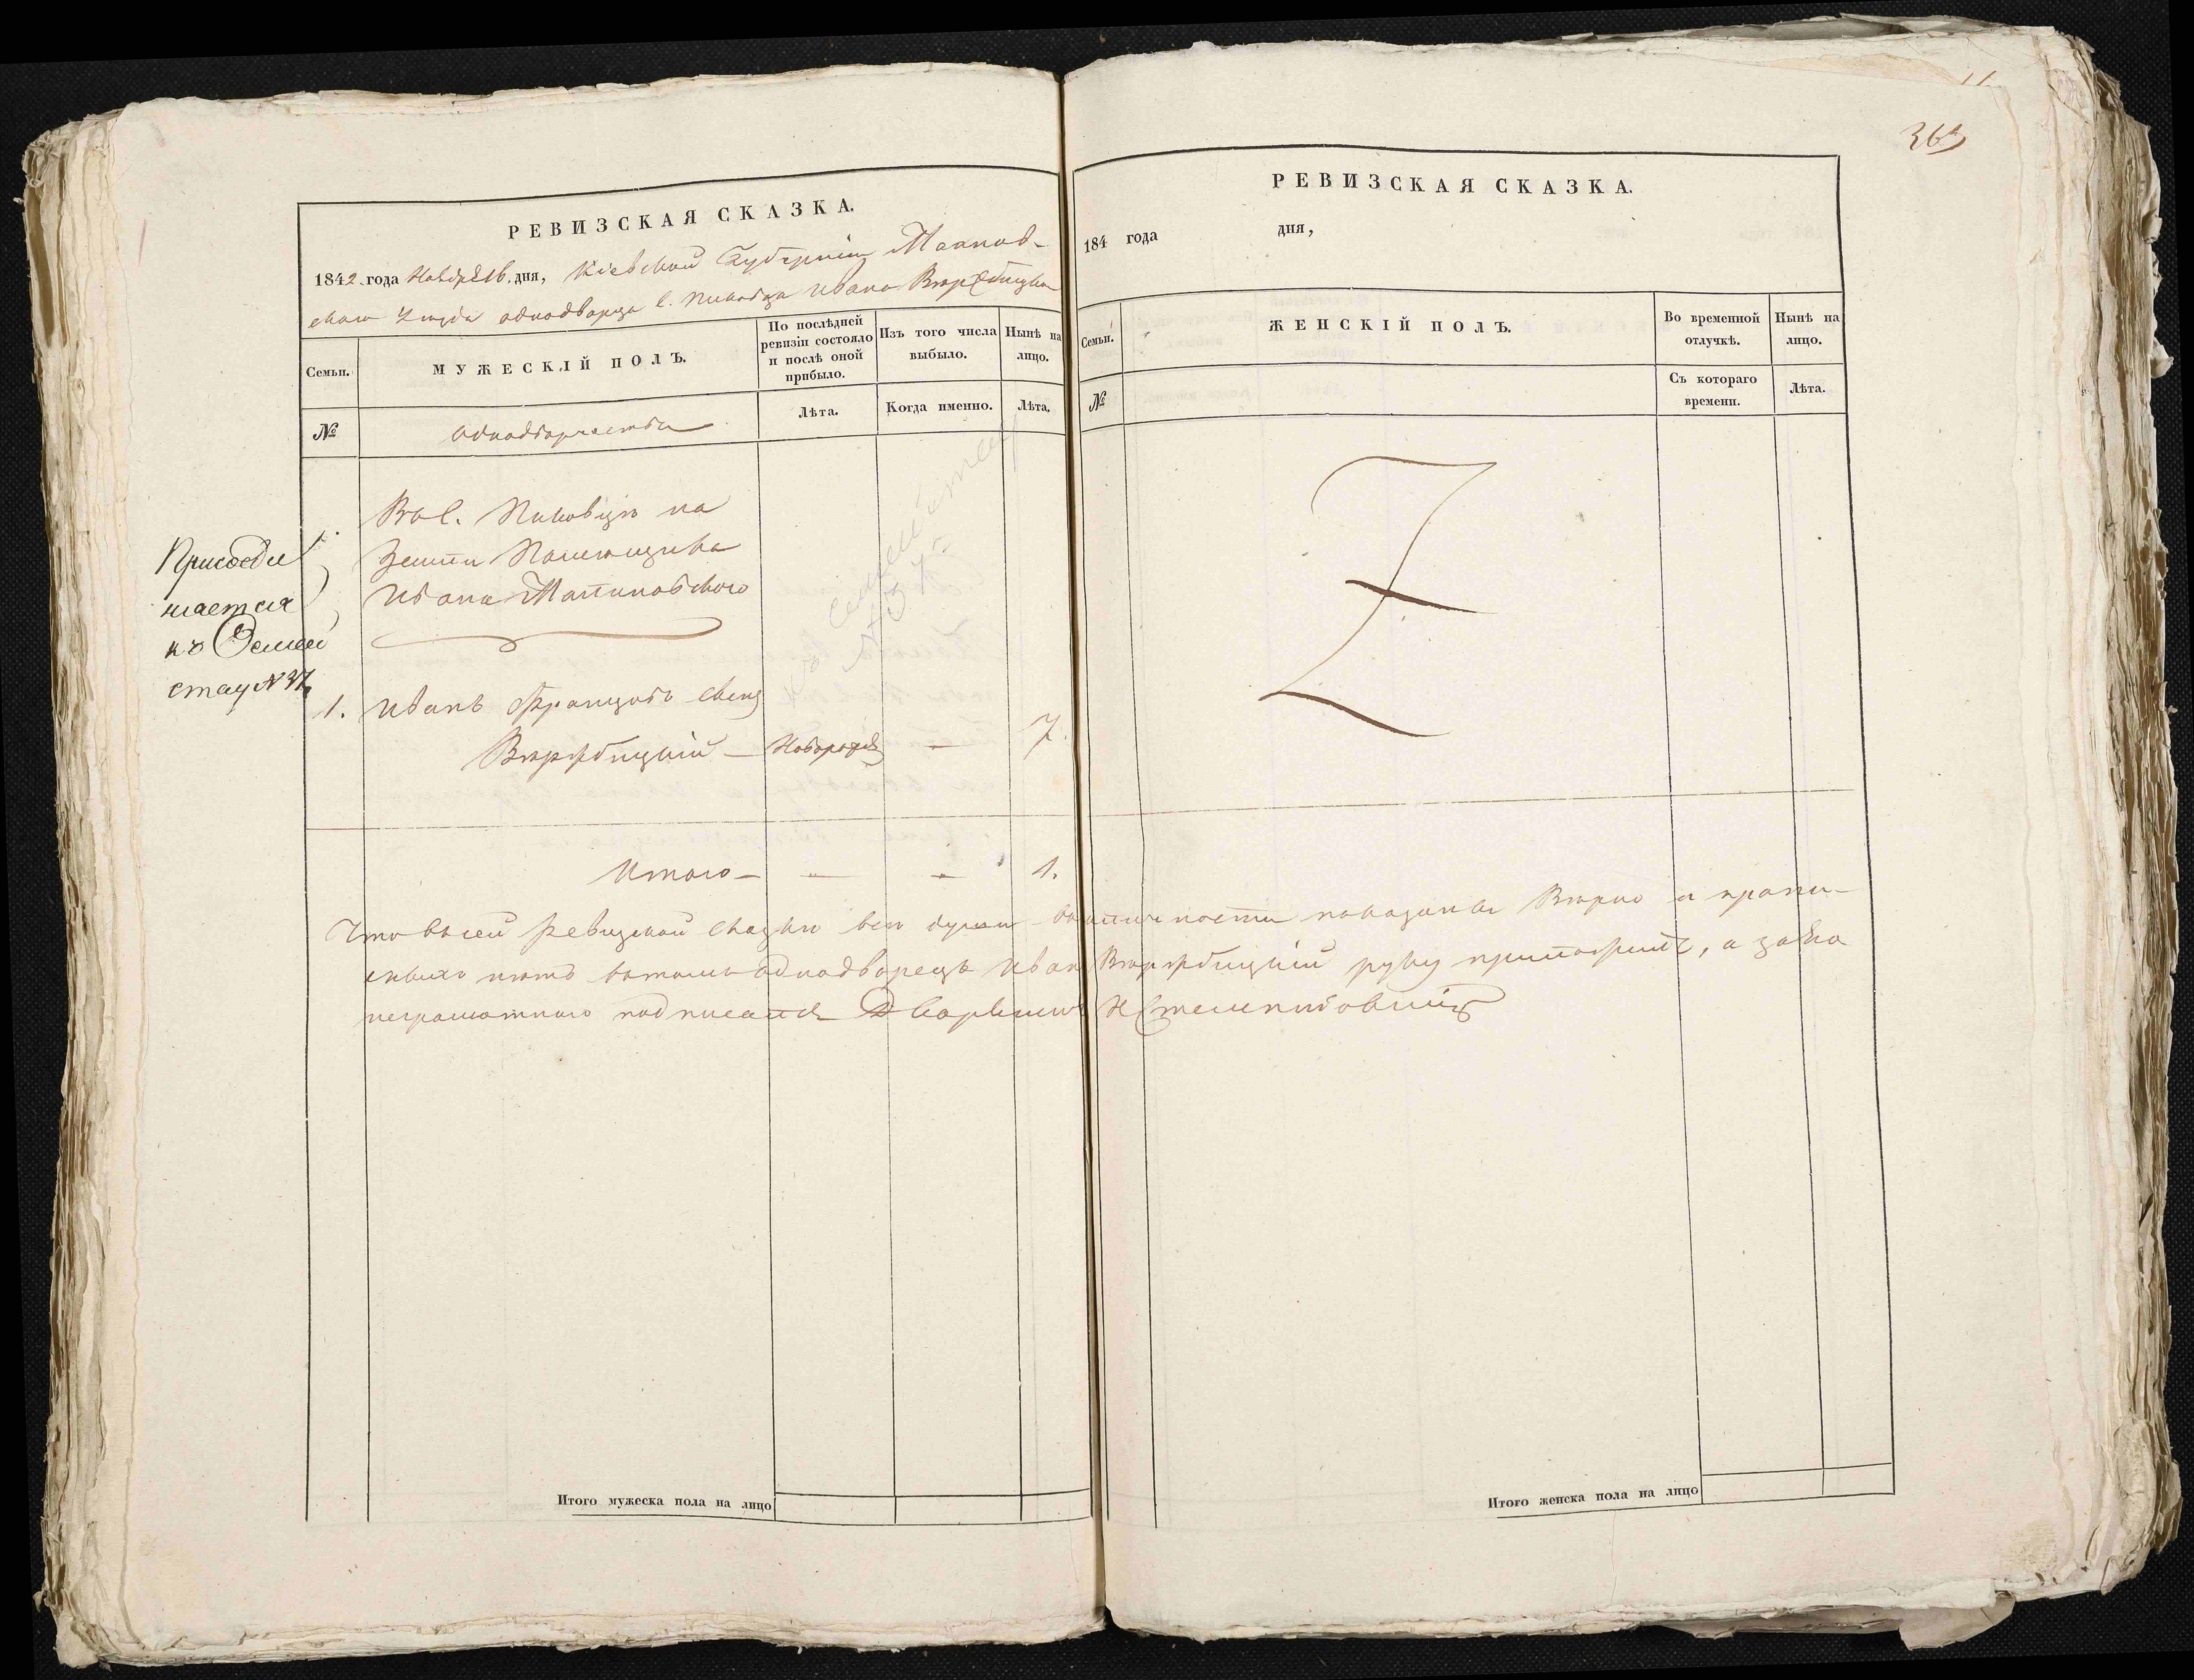 РЕВИЗСКАЯ СКАЗКА.
1842 года Ноября 16 дня, Кіевской Губерніи
скаго Уезда однодворца с. Пиковца Ивана Вержбицка
Семьи.
МУЖЕСКІЙ ПОЛЪ.
По послѣдней ревизіи состояло и послѣ оной прибыло.
Изъ того числа выбыло.
Нынѣ на лицо.
№
Однодворчества
Лѣта.
Когда именно.
Лѣта.
Въ с. Пиковцѣ на
Земли Помещика
Ивана
Присоеди
няется
къ Семей
ству № 37
1. Иванъ Францовъ сынъ
Вержбицкій — Новорожд — 7.
Семейству
№ 37
Итого — — — 1.
Что въ сей Ревизской сказки все души въ наличности показаны Верно и пропи-
въ томъ однодворецъ Иван Вержбицкій руку приложилъ, а за его
неграмотного подписался Дворянинъ
Итого мужеска пола на лицо
363
РЕВИЗСКАЯ СКАЗКА.
184 года дня,
Семьи.
ЖЕНСКІЙ ПОЛЪ.
Во временной отлучкѣ.
Нынѣ на лицо.
№
Съ котораго времени.
Лѣта.
Итого женска пола на лицо